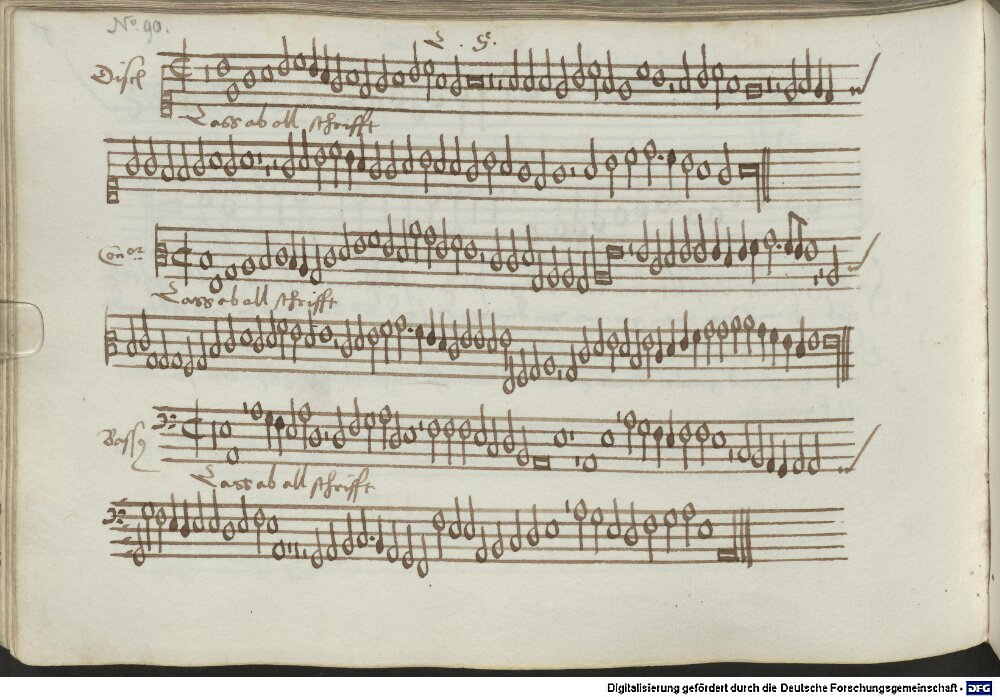 No. 90.
L. S.
Disc
Lass ab all schrifft
Tenor
Lass ab all schrifft
Bass
Lass ab all schrifft
Digitalisierung gefördert durch die Deutsche Forschungsgemeinschaft - DFG